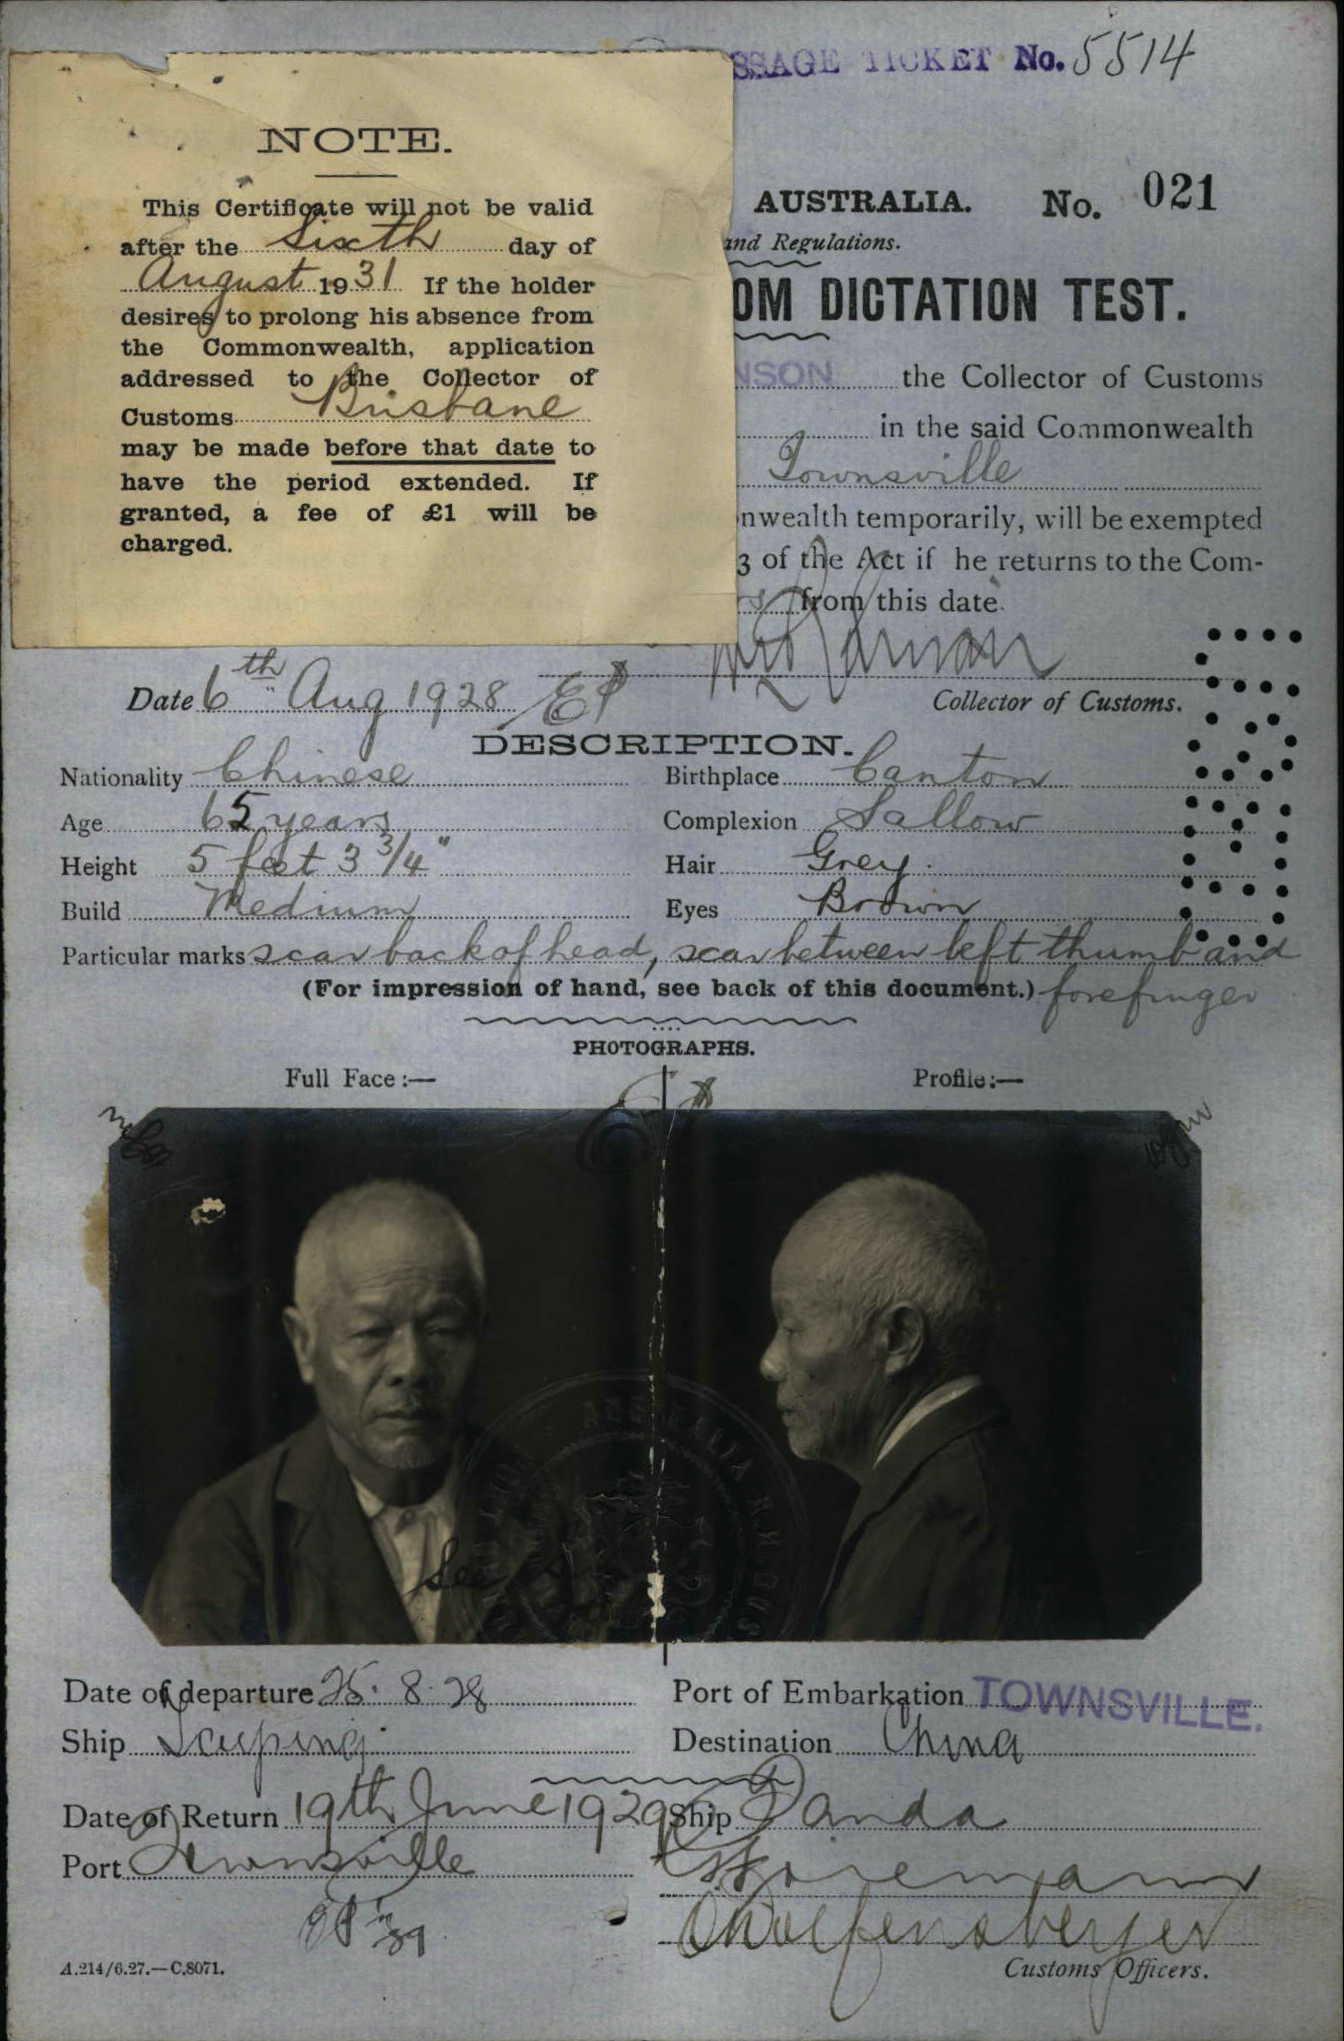 SSAGE TICKET No. 5514
NOTE.
This Certificate will not be valid
after the Sixth day of
August 1931 If the holder
desires to prolong his absence from
the Commonwealth, application
addressed to the Collector of
Customs Brisbane
may be made before that date to
have the period extended. If
granted, a fee of £1 will be
charged.
AUSTRALIA. No. 021
and Regulations.
OM DICTATION TEST.
NSON the Collector of Customs
in the said Commonwealth
Townsville
nwealth temporarily, will be exempted
3 of the Act if he returns to the Com-
from this date.
Date 6th Aug 1928
Collector of Customs.
DESCRIPTION.
Nationality Chinese Birthplace Canton
Age 65 years Complexion Sallow
Height 5 feet 3 3/4" Hair Grey.
Build Medium Eyes Brown
Particular marks scar back of head, scar between left thumb and
(For impression of hand, see back of this document.) forefinger
PHOTOGRAPHS.
Full Face:— Profile:—
Date of departure 25. 8. 28 Port of Embarkation TOWNSVILLE.
Ship Taiping. Destination China
Date of Return 19th June 1929 Ship Tanda
Port Townsville
Customs Officers.
A.214/6.27.—C.8071.